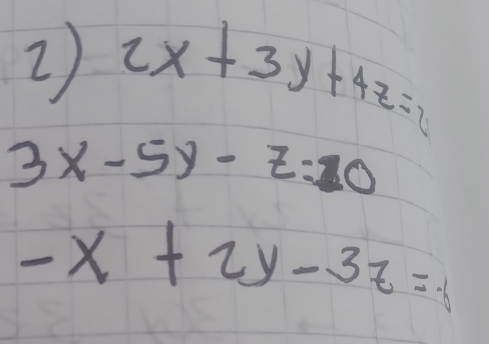 2) 2x+3y+4z=2
3x-5y-z=10
-x+2y-3z=-6